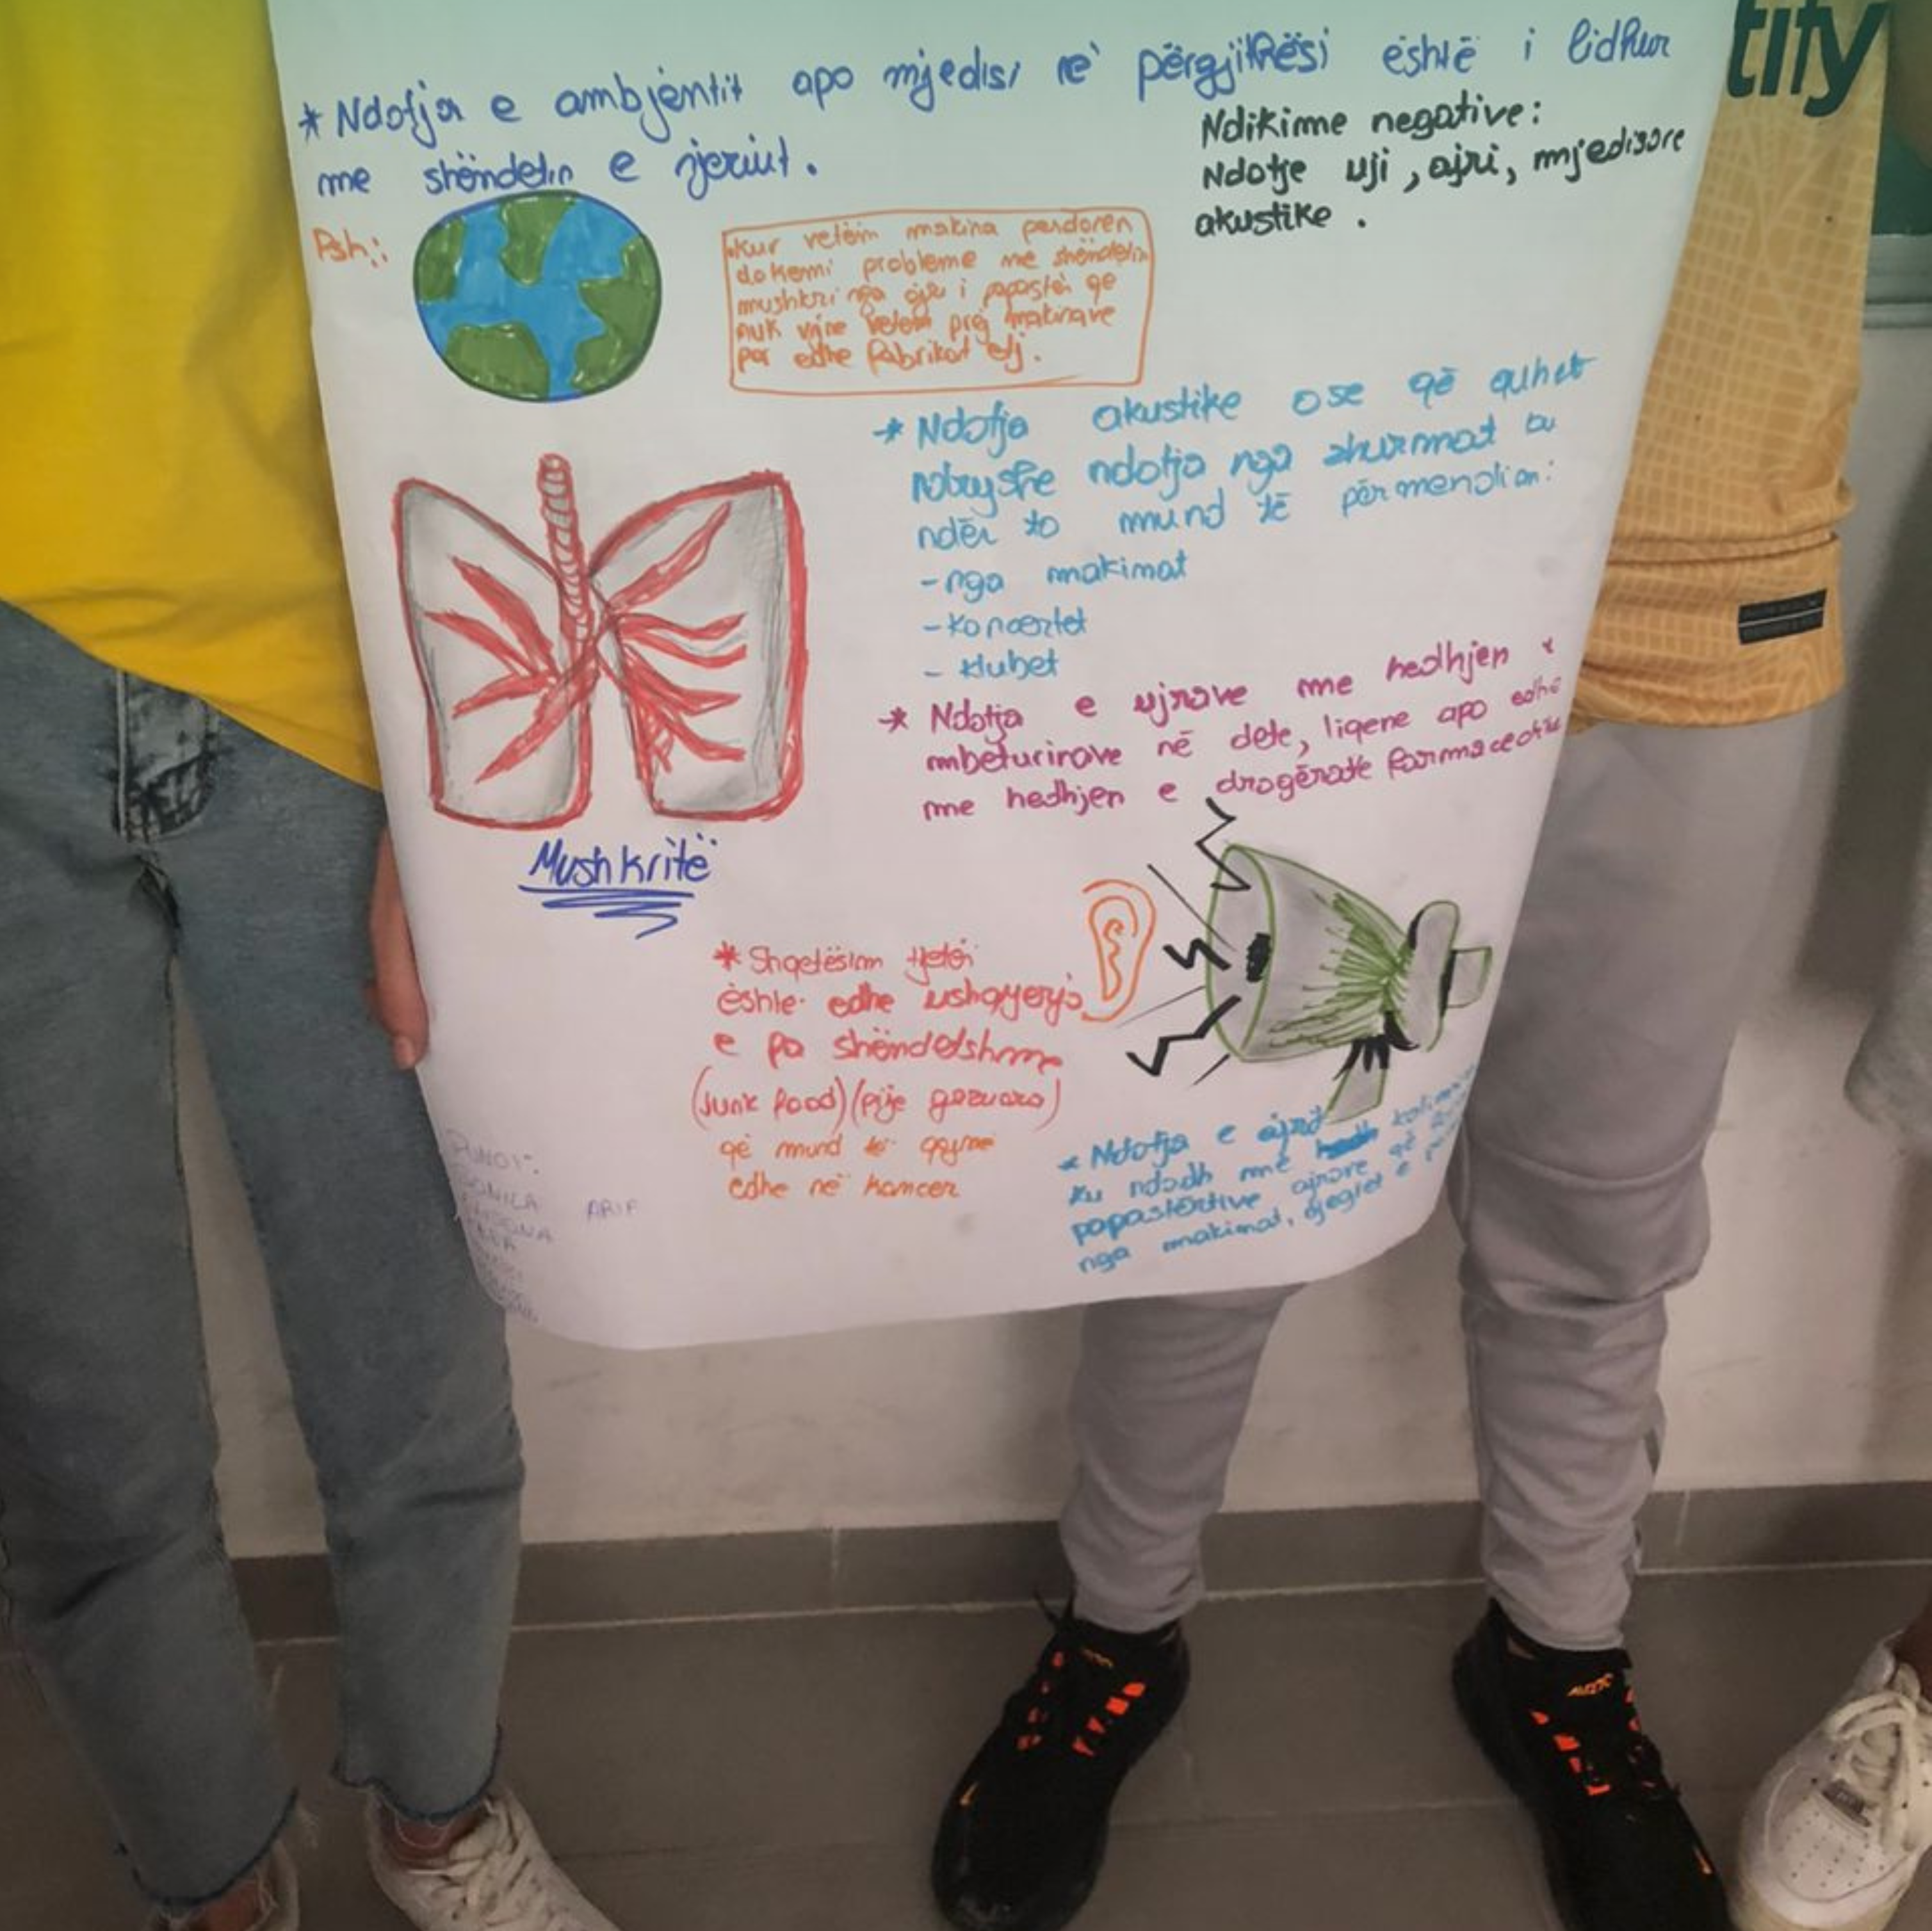 * Ndotja e ambjentit apo mjedisi në përgjithësi është i lidhur
me shëndetin e njeriut.
Ndikime negative:
Ndotje uji, ajri, mjedisore
akustike.
Psh:
kur vetëm makina perdoren
do kemi probleme me shëndetin
mushkri nga ajri i papastër qe
nuk vjne vetem prej makinave
por edhe fabrikat etj.
* Ndotja akustike ose që quhet
ndryshe ndotja nga zhurmat
ndër to mund të përmendim:
- nga makinat
- koncertet
- klubet
* Ndotja e ujrave me hedhjen e
mbeturinave në dete, liqene apo edhe
me hedhjen e drogërave farmaceotike
Mushkritë
* Shqetësim tjetër
është edhe ushqyerja
e pa shëndetshme
(junk food) (pije gazuara)
që mund të
edhe në kancer
* Ndotja e ajrit
ku ndodh me
papastërtive ajrore që
nga makinat,
PUNOI:
ARIF
tity